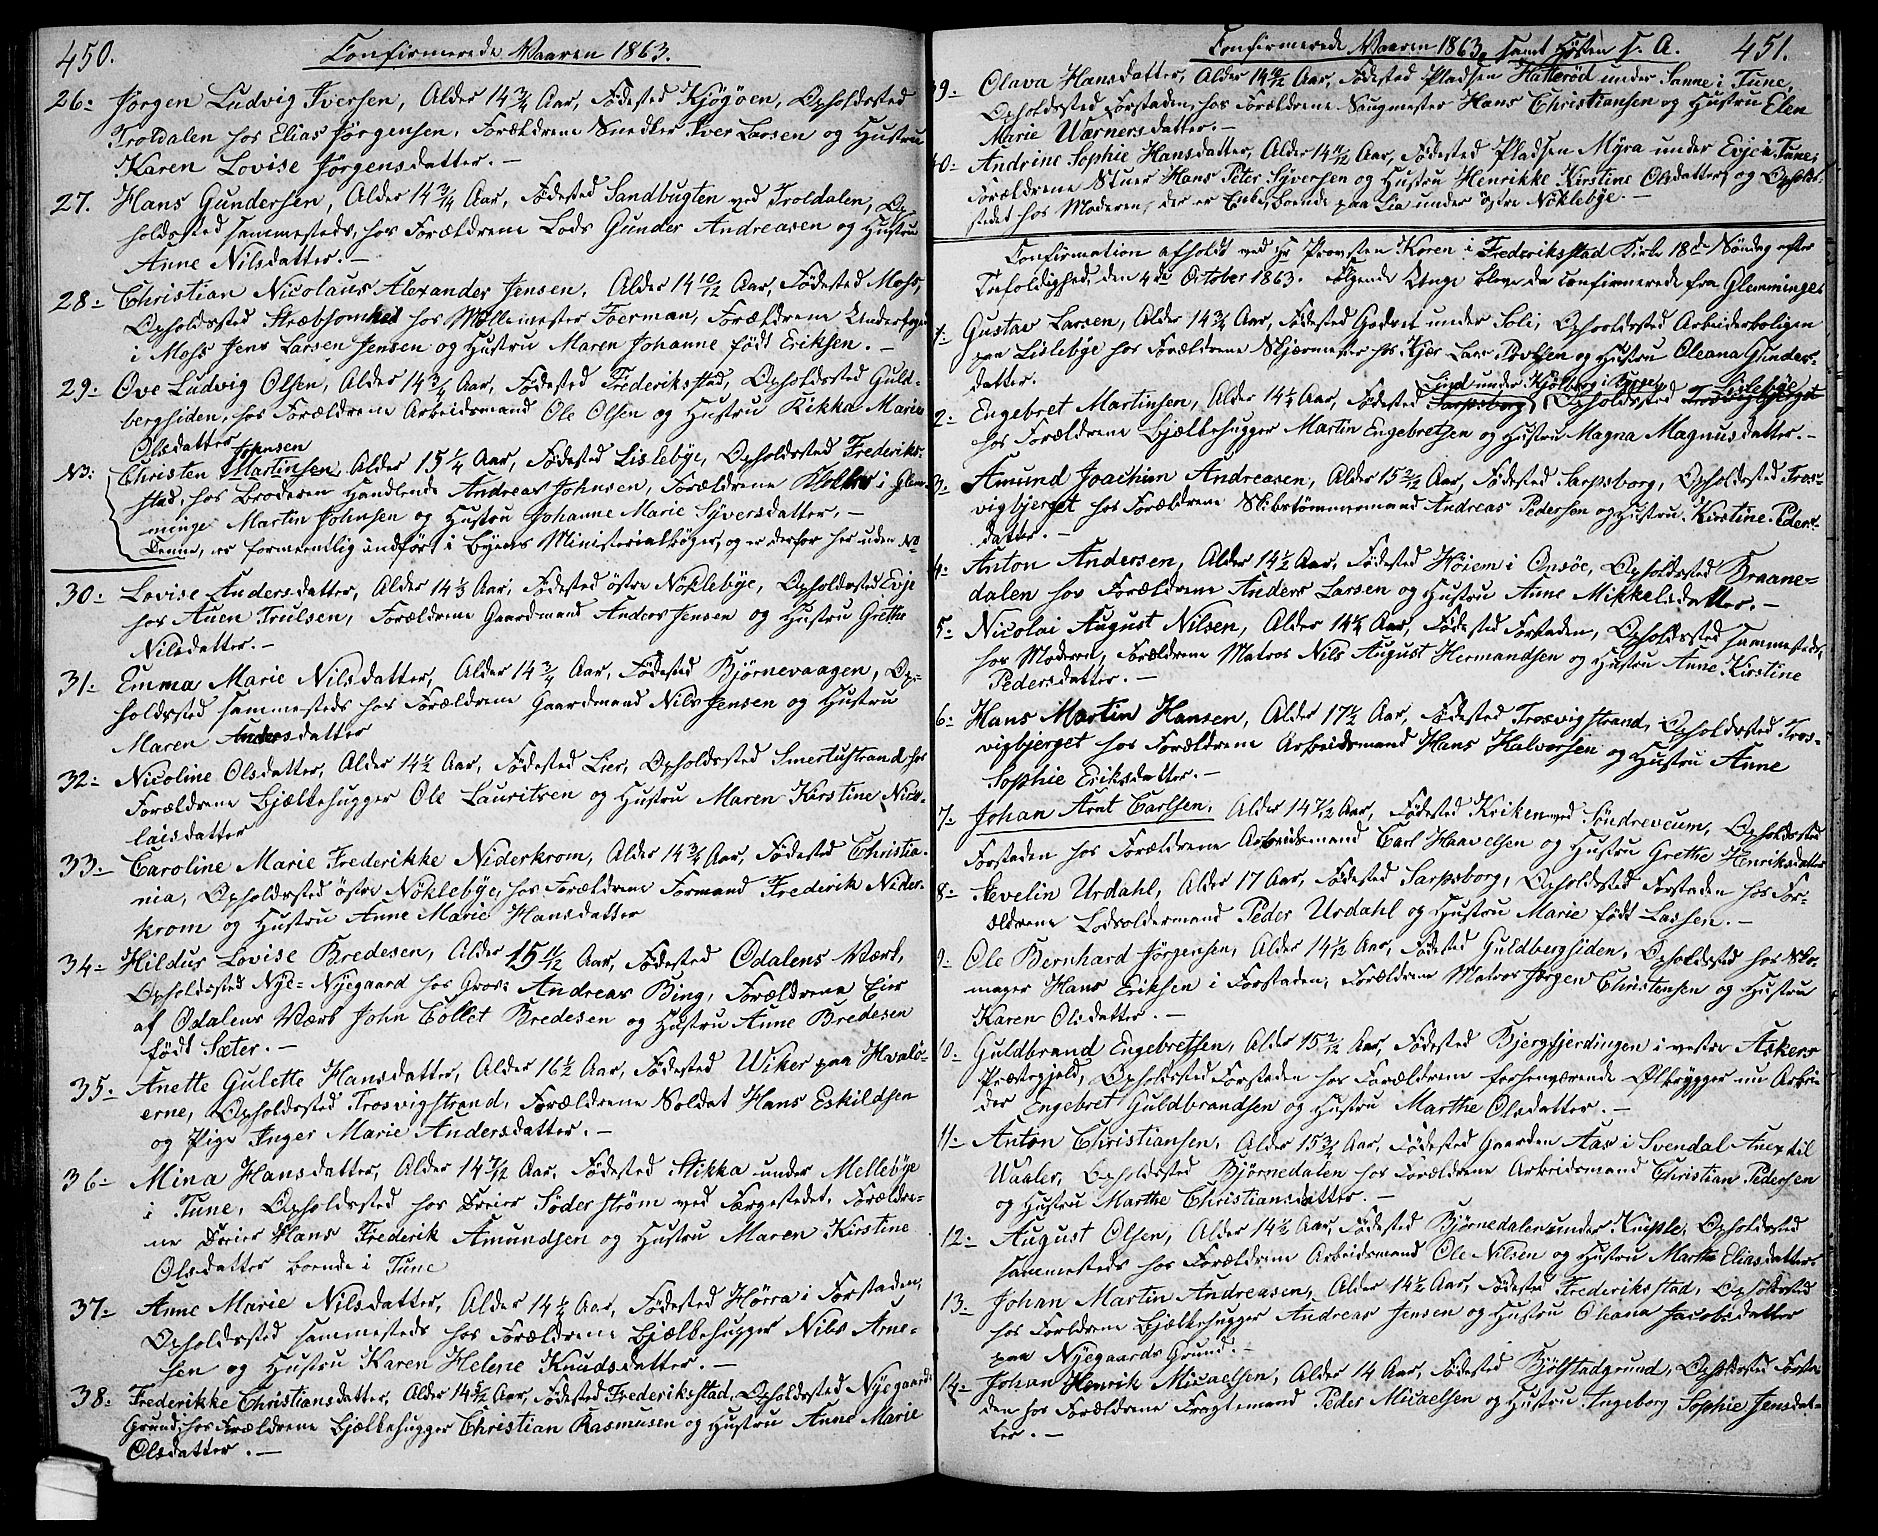 450.
Confirmerede Vaaren 1863.
26 Jørgen Ludvig Iversen, Alder 14 3/4 Aar, Fødested Kjøgöen, Opholdssted
Troldalen hos Elias Jørgensen, Forældrene Snedker Iver Larsen og Hustru
Karen Lovise Jørgensdatter.
27. Hans Gundersen, Alder 14 3/4 Aar, Fødested Sandbugten ved Troldalen, Op-
holdssted sammesteds hos Forældrene Lods Gunder Andreasen og Hustru
Anne Nilsdatter.
28 Christian Nicolaus Alexander Jensen, Alder 14 10/12 Aar, Fødested Moss,
Opholdssted Stræbsomhed hos Møllemester Foerman, Forældrene
i Moss Jens Larsen Jensen og Hustru Maren Johanne født Eriksen.
29 Ove Ludvig Olsen, Alder 14 3/4 Aar, Fødested Frederikstad, Opholdssted Guld-
bergsiden, hos Forældrene Arbeidsmand Ole Olsen og Hustru Kikka Marie
Olsdatter
Johnsen
NB: Christen Martinsen, Alder 15 1/4 Aar, Fødested Lislebye, Opholdssted Frederik-
stad, hos Broderen Handlende Andreas Johnsen, Forældrene i Glem-
minge Martin Johnsen og Hustru Johanne Marie Syversdatter.
Denne, er formeentlig indført i Byens Ministerialbøger, og er derfor her uden No
30 Lovise Andersdatter, Alder 14 1/2 Aar, Fødested østre Nøklebye, Opholdssted Evje
hos Auen Trulsen, Forældrene Gaardmand Anders Jensen og Hustru Grethe
Nilsdatter.
31 Emma Marie Nilsdatter, Alder 14 3/4 Aar, Fødested Bjørnevaagen, Op-
holdssted sammesteds hos Forældrene Gaardmand Nils Jensen og Hustru
Maren Andersdatter
32 Nicoline Olsdatter, Alder 14 1/2 Aar, Fødested Lier, Opholdssted Smertustrand hos
Forældrene Bjælkehugger Ole Lauritsen og Hustru Maren Kirstine Nico-
laisdatter
33 Caroline Marie Frederikke Niderkrom, Alder 14 3/4 Aar, Fødested Christia-
nia, Opholdssted østre Nøklebye, hos Forældrene Formand Frederik Nider-
krom og Hustru Anne Marie Hansdatter
34 Hildur Lovise Bredesen, Alder 15 11/12 Aar, Fødested Odalens Værk,
Opholdssted Nye-Nyegaard hos Gross: Andreas Bing, Forældrene Eier
af Odalens Værk John Collet Bredesen og Hustru Anne Bredesen
født Sæter.
35 Anette Gulette Hansdatter, Alder 16 1/2 Aar, Fødested Wiker paa Hvalø-
erne, Opholdssted Trosvigstrand, Forældrene Soldat Hans Eskildsen
og Pige Inger Marie Andersdatter.
36 Mina Hansdatter, Alder 14 7/12 Aar, Fødested Stikka under Mellebye
i Tune, Opholdssted hos Dreier Söderstrøm ved Færgestedet, Forældre-
ne Dreier Hans Frederik Amundsen og Hustru Maren Kirstine
Olsdatter boende i Tune
37 Anne Marie Nilsdatter, Alder 14 1/2 Aar, Fødested Hörra i Forstaden,
Opholdssted sammesteds hos Forældrene Bjælkehugger Nils Arne-
sen og Hustru Karen Helene Knudsdatter.
38 Frederikke Christiansdatter, Alder 14 5/12 Aar, Fødested Frederikstad, Opholdssted Nyegaards
Grund, hos Forældrene Bjælkehugger Christian Rasmusen og Hustru Anne Marie
Olsdatter.
Confirmerede Vaaren 1863, samt Høsten s. A. 451.
39 Olava Hansdatter, Alder Aar, Fødested Pladsen Hatterød under Sanne i Tune,
Opholdssted Forstaden, hos Forældrene Saugmester Hans Christiansen og Hustru Elen
Marie Wærnersdatter.
40 Andrine Sophie Hansdatter, Alder 14 11/12 Aar, Fødested Pladsen Myra under Evje i Tune,
Forældrene Stuer Hans Peter Syversen og Hustru Henrikke Kirstine Olsdatter, og Opholds-
stedet hos Moderen, der er Enke, boende paa Lia under østre Nöklebye.
Confirmation afholdt ved Hr Provsten Koren i Frederiksstad Kirke 18de Søndag efter
Trefoldighed, den 4de October 1863. Følgende Unge bleve da confirmerede fra Glemminge:
1 Gustav Larsen, Alder 14 3/4 Aar, Fødested Godset under Soli, Opholdssted Arbeiderboligen
paa Lislebye hos Forældrene Lars og Hustru Oleana Gunders-
datter.
Lund under Kjølberg i Lislebye
2 Engebret Martinsen, Alder 14 1/2 Aar, Fødested Sarpsborg, Opholdssted Trosvigbjerget
hos Forældrene Bjælkehugger Martin Engebretsen og Hustru Magna Magnusdatter.
3 Amund Joachim Andreasen, Alder 15 2/12 Aar, Fødested Sarpsborg, Opholdssted Tros-
vigbjerget hos Forældrene Skibstømmermand Andreas Pedersen og Hustru Kirstine Peders-
datter.
4 Anton Andersen, Alder 14 1/2 Aar, Fødested Høiem i Onsöe, Opholdssted Braane-
dalen hos Forældrene Anders Larsen og Hustru Anne Mikkelsdatter.
5 Nicolai August Nilsen, Alder Aar, Fødested Forstaden, Opholdssted sammesteds
hos Moderen, Forældrene Matros Nils August Hermandsen og Hustru Anne Kirstine
Pedersdatter.
6 Hans Martin Hansen, Alder 17 1/2 Aar, Fødested Trosvigstrand, Opholdssted Tros-
vigbjerget hos Forældrene Arbeidsmand Hans Halvorsen og Hustru Anne
Sophie Eriksdatter.
7 Johan Arnt Carlsen, Alder 14 7/12 Aar, Fødested Kriken ved Söndreveum, Opholdssted
Forstaden hos Forældrene Arbeidsmand Carl Haavelsen og Hustru Grethe Henriksdatter
8 Sevelin Urdahl, Alder 17 Aar, Fødested Sarpsborg, Opholdssted Forstaden hos For-
ældrene Lodsoldermand Peder Urdahl og Hustru Marie født Lassen.
9 Ole Bernhard Jørgensen, Alder 14 1/2 Aar, Fødested Guldbergsiden, Opholdssted hos Sko-
mager Hans Eriksen i Forstaden, Forældrene Matros Jørgen Christensen og Hustru
Karen Olsdatter.
10 Guldbrand Engebretsen, Alder 15 2/12 Aar, Fødested Bjergfjerdingen i vestre Askers
Præstegjeld, Opholdssted Forstaden hos Forældrene forhenværende Ølbrygger nu Arbei-
der Engebret Guldbrandsen og Hustru Marthe Olsdatter.
11 Anton Christiansen, Alder 15 3/4 Aar, Fødested Gaarden Aas i Svendal Anex til
Waaler, Opholdssted Bjørnedalen hos Forældrene Arbeidsmand Christian Pedersen
og Hustru Marthe Christiansdatter.
12 August Olsen, Alder 14 1/2 Aar, Fødested Bjørnedalen under Kniple, Opholdssted
sammesteds hos Forældrene Arbeidsmand Ole Nilsen og Hustru Marthe Eliasdatter.
13 Johan Martin Andreasen, Alder 14 1/2 Aar, Fødested Frederikstad, Opholdssted
hos Forældrene Bjælkehugger Andreas Jensen og Hustru Oleana Jacobsdatter
paa Nyegaards Grund.
14 Johan Henrik Micaelsen, Alder 14 Aar, Fødested Bjölstadgrund, Opholdssted Forsta-
den hos Forældrene Fragtemand Peder Micaelsen og Hustru Ingeborg Sophie Jensdat-
ter.